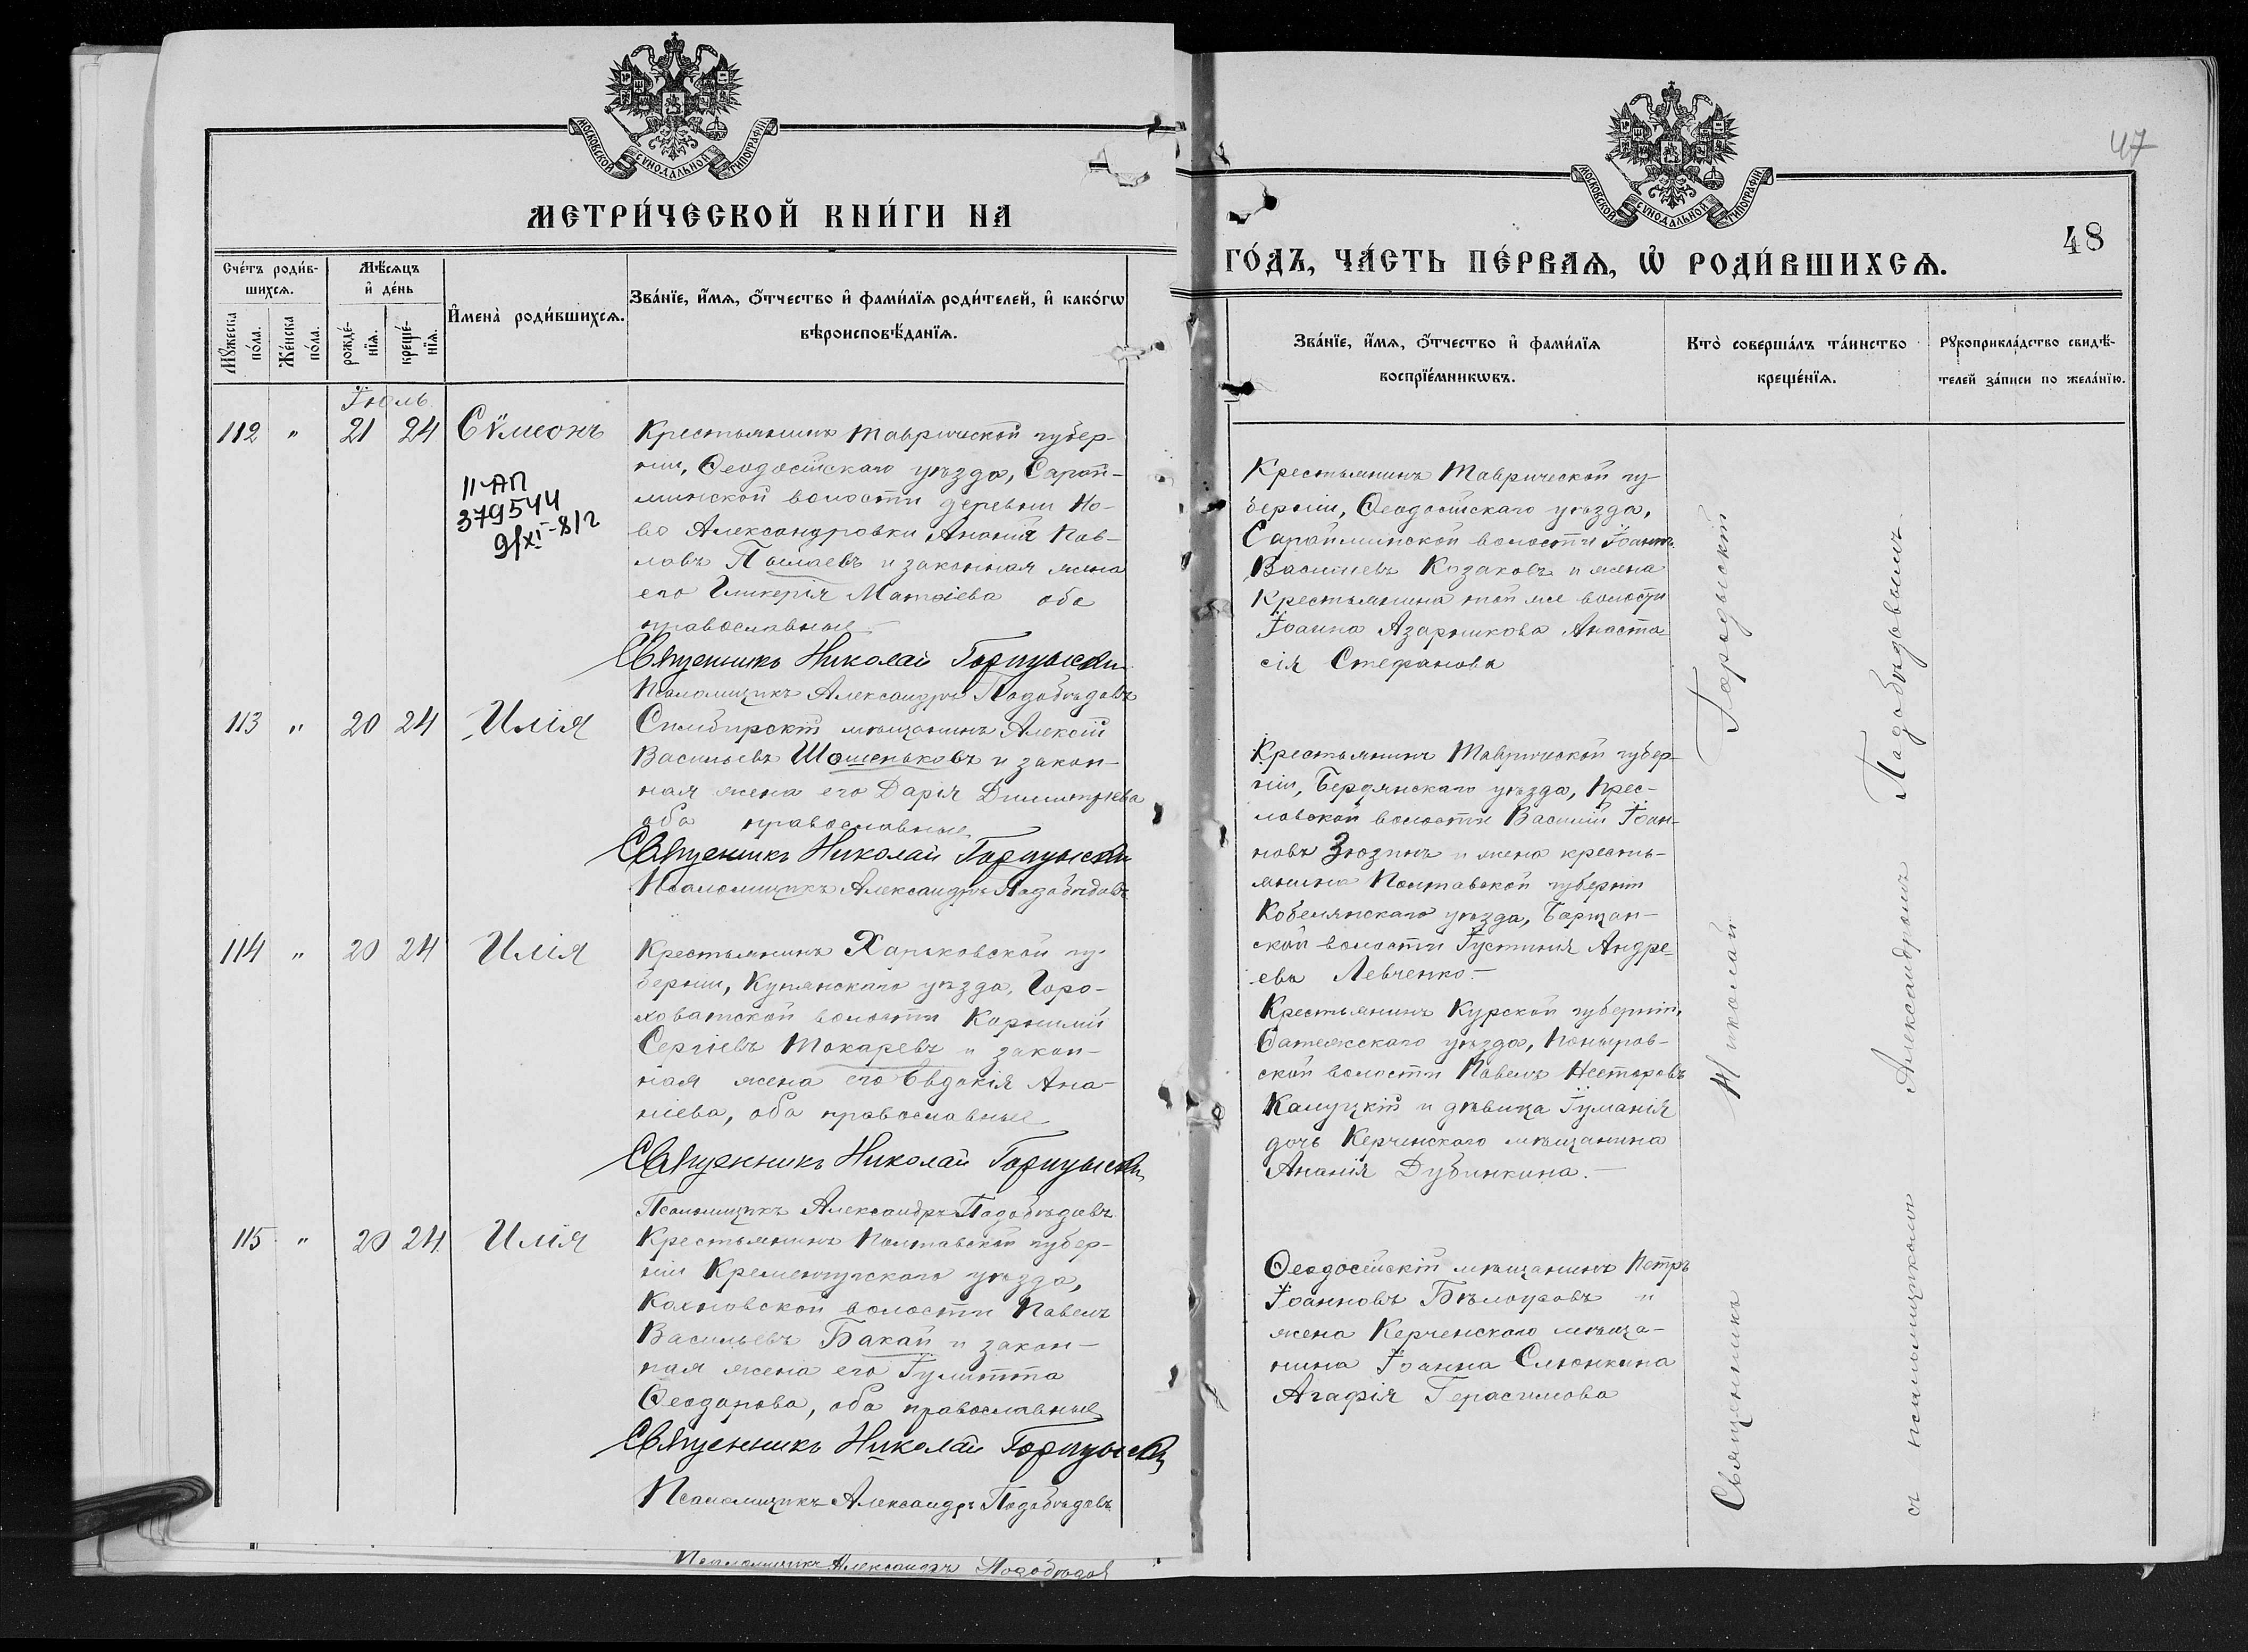 МОСКОВСКОЙ СѴНОДАЛЬНОЙ ТИПОГРАФІИ
МЕТРИ́ЧЕСКОЙ КНИ́ГИ НА
Сче́тъ роди́в-
шихсѧ.
Мꙋ́жеска
по́ла.
Же́нска
по́ла.
Мѣ́сѧцъ
и҆ де́нь
рожде́-
нїѧ.
креще́-
нїѧ.
И҆мена̀ роди́вшихсѧ.
Зва́нїе, и҆́мѧ, ѻ҆́тчество и҆ фами́лїѧ роди́телей, и҆ како́гѡ
вѣроисповѣ́данїѧ.
Іюль
112 " 21 24 Сѵмеонъ
11-АП
379544
9/XI-81г
Крестьянинъ Таврической губер-
ніи, Ѳеодосійскаго уѣзда, Сарай-
минской волости деревни Но-
во Александровки Ананія Пав-
ловъ и законная жена
его Гликерія Матѳіева оба
православные
Священникъ Николай Городыскій
Псаломщикъ Александръ Подобѣдовъ
113 " 20 24 Илія
Симбирскій мѣщанинъ Алексій
Васильевъ Шошеньковъ и закон-
ная жена его Дарія Димитріева
оба православные
Священникъ Николай Городыскій
Псаломщикъ Александръ Подобѣдовъ
114 " 20 24 Илія
Крестьянинъ Харьковской гу-
берніи, Купянскаго уѣзда, Горо-
ховатской волости Корнилій
Сергіевъ Токаревъ и закон-
ная жена его Евдокія Ана-
ніева, оба православные
Священникъ Николай Городыскій
Псаломщикъ Александръ Подобѣдовъ
115 " 20 24 Илія
Крестьянинъ Полтавской губер-
ніи Кременчугскаго уѣзда,
Кохновской волости Павелъ
Васильевъ Бакай и закон-
ная жена его Іулитта
Ѳеодорова, оба православные
Священникъ Николай Городыскій
Псаломщикъ Александръ Подобѣдовъ
Псаломщикъ Александръ Подобѣдов
47
МОСКОВСКОЙ СѴНОДАЛЬНОЙ ТИПОГРАФІИ
48
ГО́ДЪ, ЧА́СТЬ ПЕ́РВАѦ, Ѡ҆ РОДИ́ВШИХСѦ.
Зва́нїе, и҆́мѧ, ѻ҆́тчество и҆ фами́лїѧ
воспрїе́мникѡвъ.
Кто̀ соверша́лъ та́инство
креще́нїѧ.
Рꙋкоприкла́дство свидѣ́-
телей за́писи по жела́нїю.
Крестьянинъ Таврической гу-
берніи, Ѳеодосійскаго уѣзда,
Сарайминской волости Іоаннъ
Васильевъ Козаковъ и жена
Крестьянина той же волости
Іоанна Азарникова Анаста-
сія Стефанова
Крестьянинъ Таврической губер-
ніи, Бердянскаго уѣзда, Прес-
лавской волости Василій Іоан-
новъ Зюзинъ и жена кресть-
янина Полтавской губерніи
Кобелякскаго уѣзда,
ской волости Іустинія Андре-
ева Левченко.—
Крестьянинъ Курской губерніи,
Фатежскаго уѣзда, Поныров-
ской волости Павелъ Несторовъ
Калуцкій и дѣвица Іуланія
дочь Керченскаго мѣщанина
Ананія Дубинкина.—
Ѳеодосійскій мѣщанинъ Петръ
Іоанновъ Бѣлоусовъ и
жена Керченскаго мѣща-
нина Іоанна Слюнкина
Агафія Герасимова
Священникъ Николай Городыскій
съ псаломщикомъ Александромъ Подобѣдовымъ.